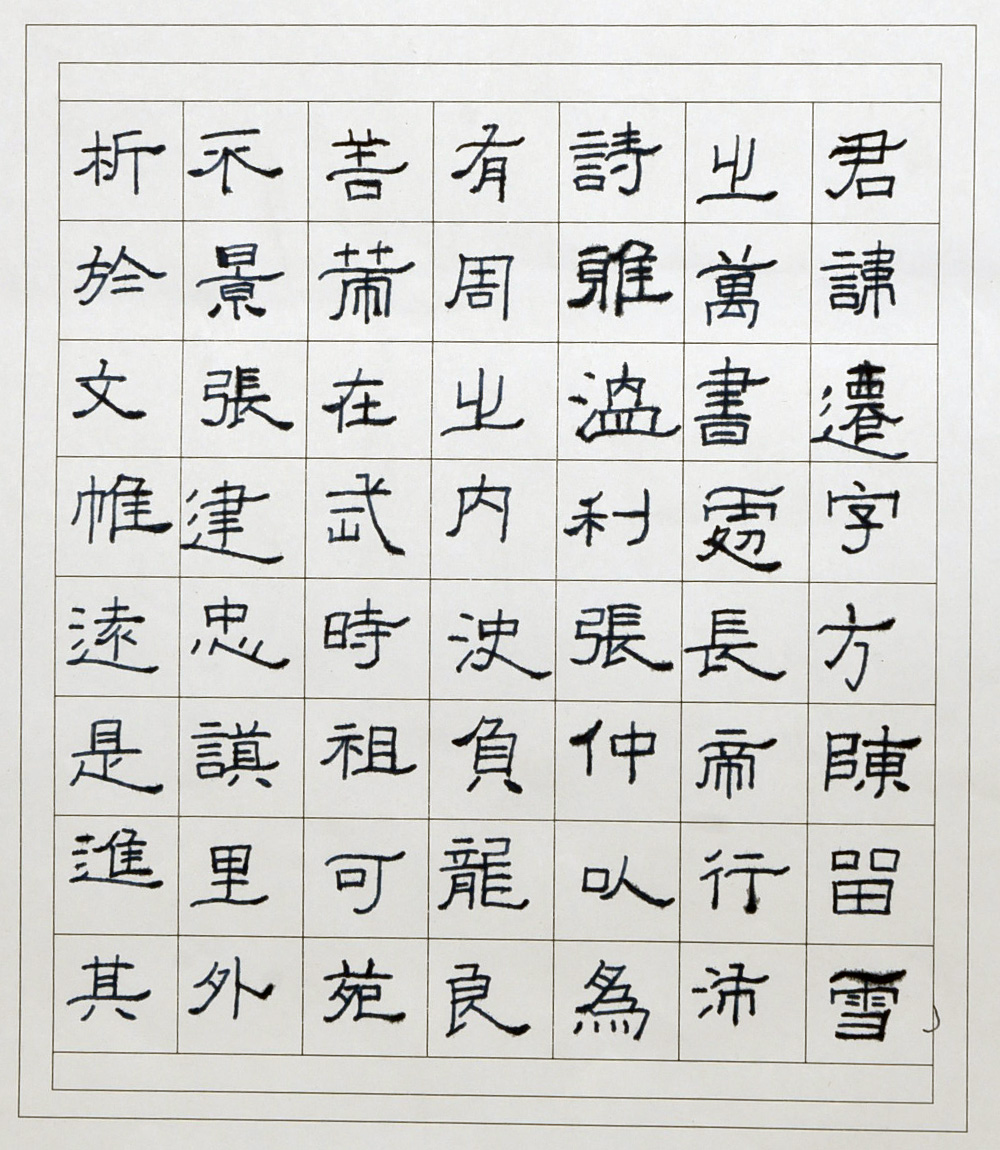 君諱遷字方陳留雪
之萬書處長帝行沛
詩雅溫利張仲以為
有周之内負龍良
善芾在武時祖可苑
不景張建忠謨里外
析於文帷遠是進其